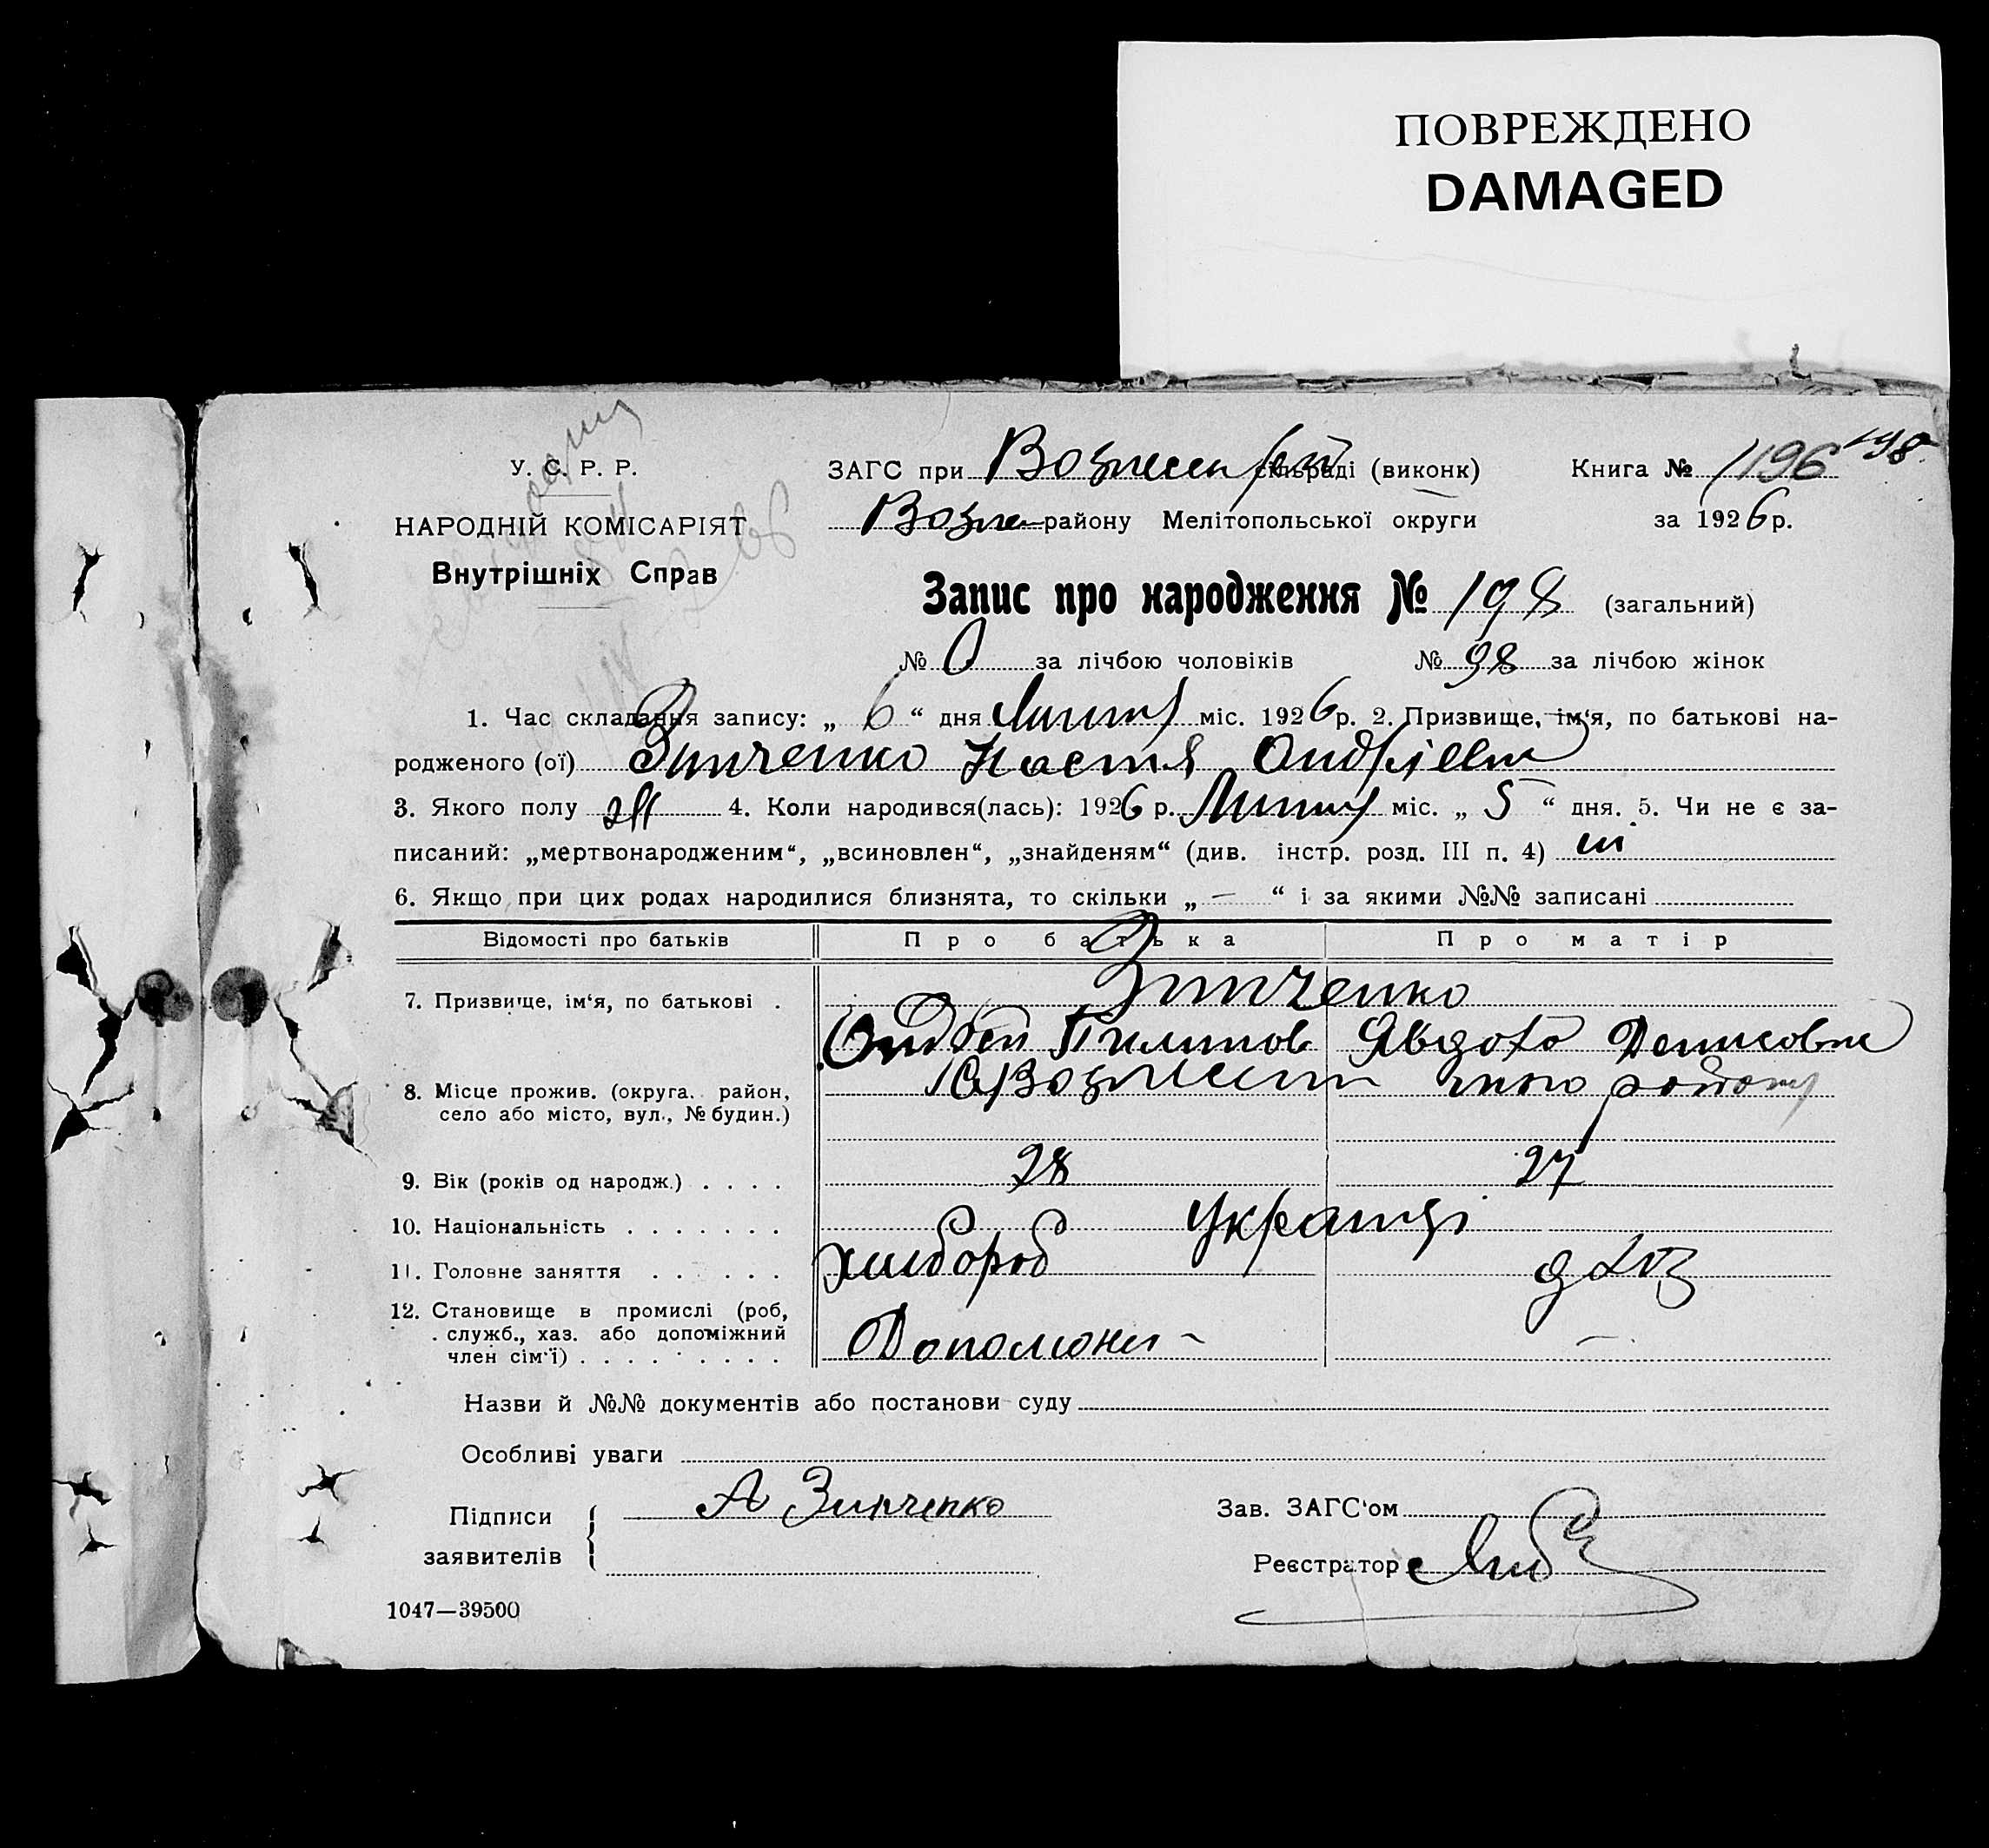 ПОВРЕЖДЕНО
DAMAGED
У. С. Р. Р.
НАРОДНІЙ КОМІСАРІЯТ
Внутрішніх Справ
ЗАГС при сільраді (виконк)
Книга № 1196 198
району Мелітопольської округи
за 1926 р.
Запис про народження № 198 (загальний)
№ 0 за лічбою чоловіків № 98 за лічбою жінок
1. Час складання запису: „ 6 “ дня Липня міс. 1926 р. 2. Призвище, ім‘я, по батькові на-
родженого (ої) Зинченко Настя Ондріевна
3. Якого полу 4. Коли народився(лась): 1926 р. Липня міс. „ 5 “ дня. 5. Чи не є за-
писаний: „мертвонародженим“, „всиновлен“, „знайденям“ (див. інстр. розд. III п. 4) ні
6. Якщо при цих родах народилися близнята, то скільки „ — “ і за якими №№ записані
Відомості про батьків Про батька Про матір
7. Призвище, ім‘я, по батькові . Зинченко
Ондрей Пилипов Явдоха Денисовна
8. Місце прожив. (округа. район, село або місто, вул., № будин.) району
9. Вік (років од народж.) . . . . 28 27
10. Національність . . . . . . . Украінці
11. Головне заняття . . . . . . хлибороб
12. Становище в промислі (роб, служб., хаз. або допоміжний член сім‘ї) . . . . . . . . . —
Назви й №№ документів або постанови суду
Особливі уваги
Підписи заявителів А Зинченко
Зав. ЗАГС‘ом
Реєстратор
1047—39500